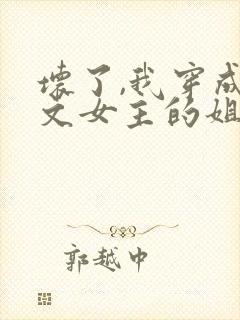 壞了,我穿成
文女主的姐
郭越中